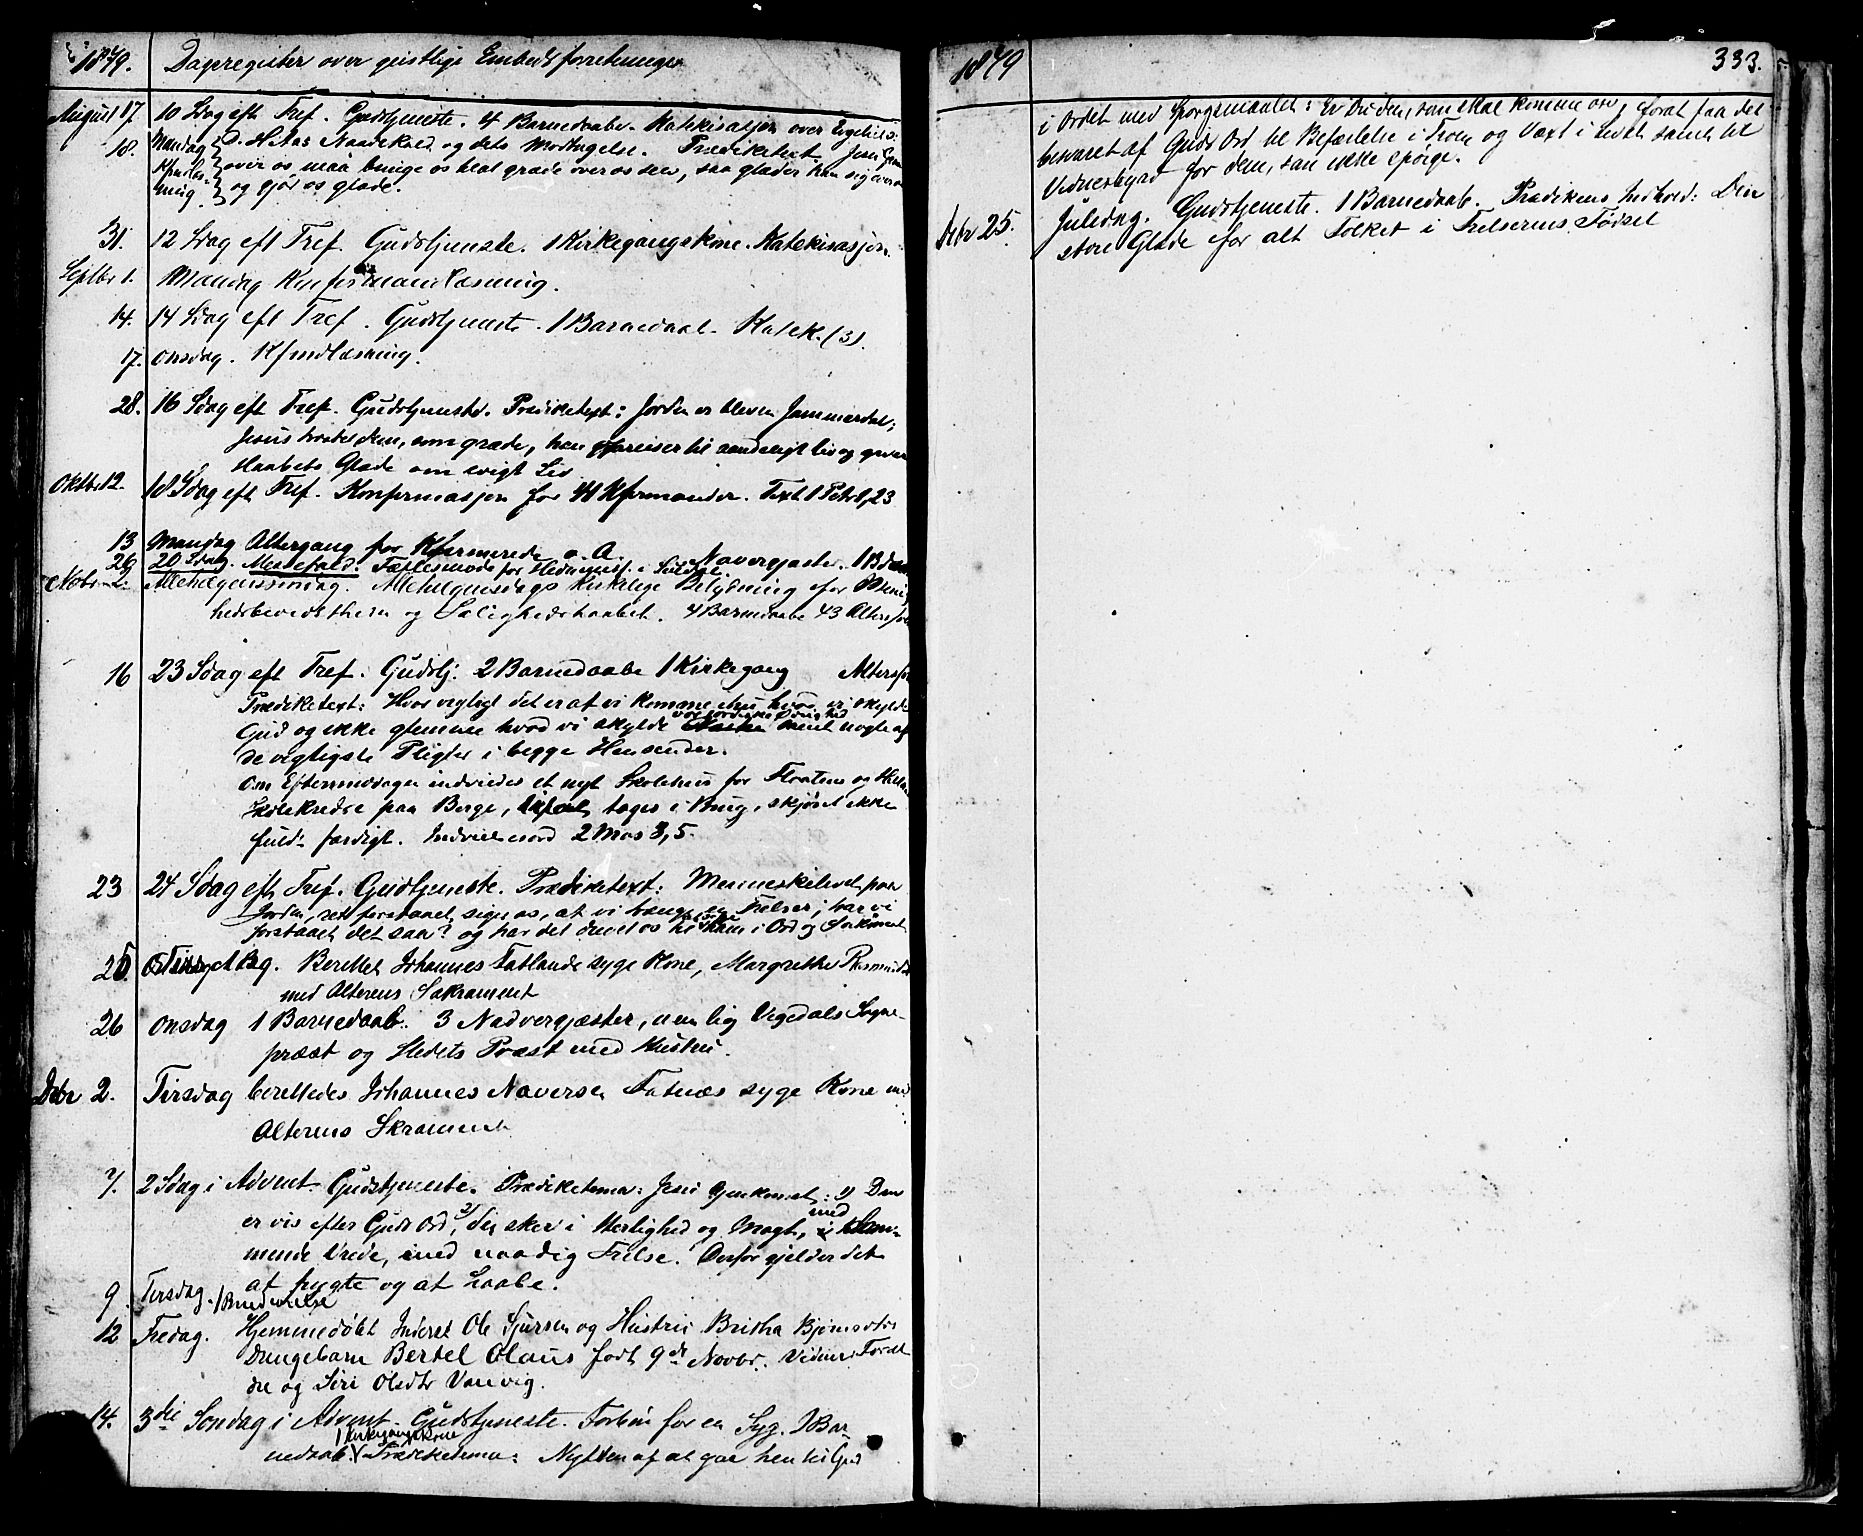 1879. Dagsregister over geistlige Embedsforretninger
August 17. 10 Sdag eft Tref. Gudstjeneste. 4 Barnedaabe. Katekisasjon over
18. Mandag Naadekald og dets Modtagelse. Prædiketext Jesu
over os, maa bringe os til at græde over os selv, saa glæder han sig over os
og gjør os glade.
31. 12 Sdag eft Tref. Gudstjeneste. 1 Kirkegangskone. Katekisasjon.
Septbr 1. Mandag Konfirmandlæsning.
14. 14 Sdag eft Tref. Gudstjeneste. 1 Barnedaab. Katek. (3).
17. Onsdag. Kfmdlæsning.
28. 16 Sdag eft Tref. Gudstjeneste. Prædiketext: Jorden er bleven Jammerdal;
Jesus trøster dem, som græde, han opreiser til aandeligt liv og giver
Haabets Glæde om evigt Liv
Oktbr 12. 18 Sdag eft Tref. Konfirmasjon for 41 Kfirmander. Text 1 Pet 1,23
13 Mandag Altergang for Kfirmerede o. A. Navergjester. 1 Bdaab
26 20 Sdag. Messefald. Fællesmøde for Hedningm. i
Novbr 2. Allehelgenssøndag. Allehelgensdags kirkelige Betydning for
hedsbevidstheden og Salighedshaabet. 4 Barnedaabe 43 Altersfolk
16 23 Sdag eft Tref. Gudstj. 2 Barnedaabe 1 Kirkegang Altersfolk
Prædiketext: Hvor vigtigt det er at vi komme ihu hvad vi skylde
Gud og ikke glemme hvad vi skylde vor jordiske Øvrighed samt nogle af
de vigtigste Pligter i begge Henseender.
Om Eftermiddagen indviedes et nyt Skolehus for Flaatene og
Skolekredse paa Berge, tages i Brug, skjønt ikke
fuldt færdigt. Indvielsesord 2 Mos 3,5.
23 24 Sdag eft Tref. Gudstjeneste. Prædiketext: Menneskelivet paa
Jorden, ret forstaaet, siger os, at vi trænge en Frelser; har vi
forstaaet det saa? og har det drevet os til at søge ham i Ord og Sakrament
25 Tirsdag. Berettet Johannes Tatlands syge Kone, Margrethe Rasmusdtr
med Alterens Sakrament
26 Onsdag 1 Barnedaab. 3 Nadvergjæster, nemlig Vigedals Sogne-
præst og Stedets Præst med Hustru.
Debr 2. Tirsdag berettedes Johannes Naversen Fatnæs syge Kone med
Alterens Skrament
7. 2 Sdag i Advent. Gudstjeneste. Prædiketema: Jesu Gjenkomst: 1) Den
er vis efter Guds Ord, 2) den sker i Herlighed og Magt, med
mende Vrede, med naadig Frelse. Derfor gjelder det
at frygte og at haabe.
9. Tirsdag. 1 Brudevielse
12 Fredag. Hjemmedøbt Inderst Ole Sjursen og Hustru Britha Bjørnsdtrs
Drengebarn Bertel Olaus født 9de Novbr. Vidner: Foræl-
dre og Siri Olsdtr Vanvig.
14. 3die Søndag i Advent. Gudstjeneste. Forbøn for en Syg. 1 Bar-
nedaab. 1 Kirkegangskone Prædiketema: Nytten af at gaa hen til Gud
1879 333.
i Ordet med Spørgsmaalet: Er Du den, som skal komme osv, forat faa det
besvaret af Guds Ord til Befæstelse i Troen og Væxt i Livet samt til
Vidnesbyrd for dem, som ikke spørge.
Debr 25. Juledag. Gudstjeneste. 1 Barnedaab. Prædikens Indhold: Den
store Glæde for alt Folket i Frelserens Fødsel